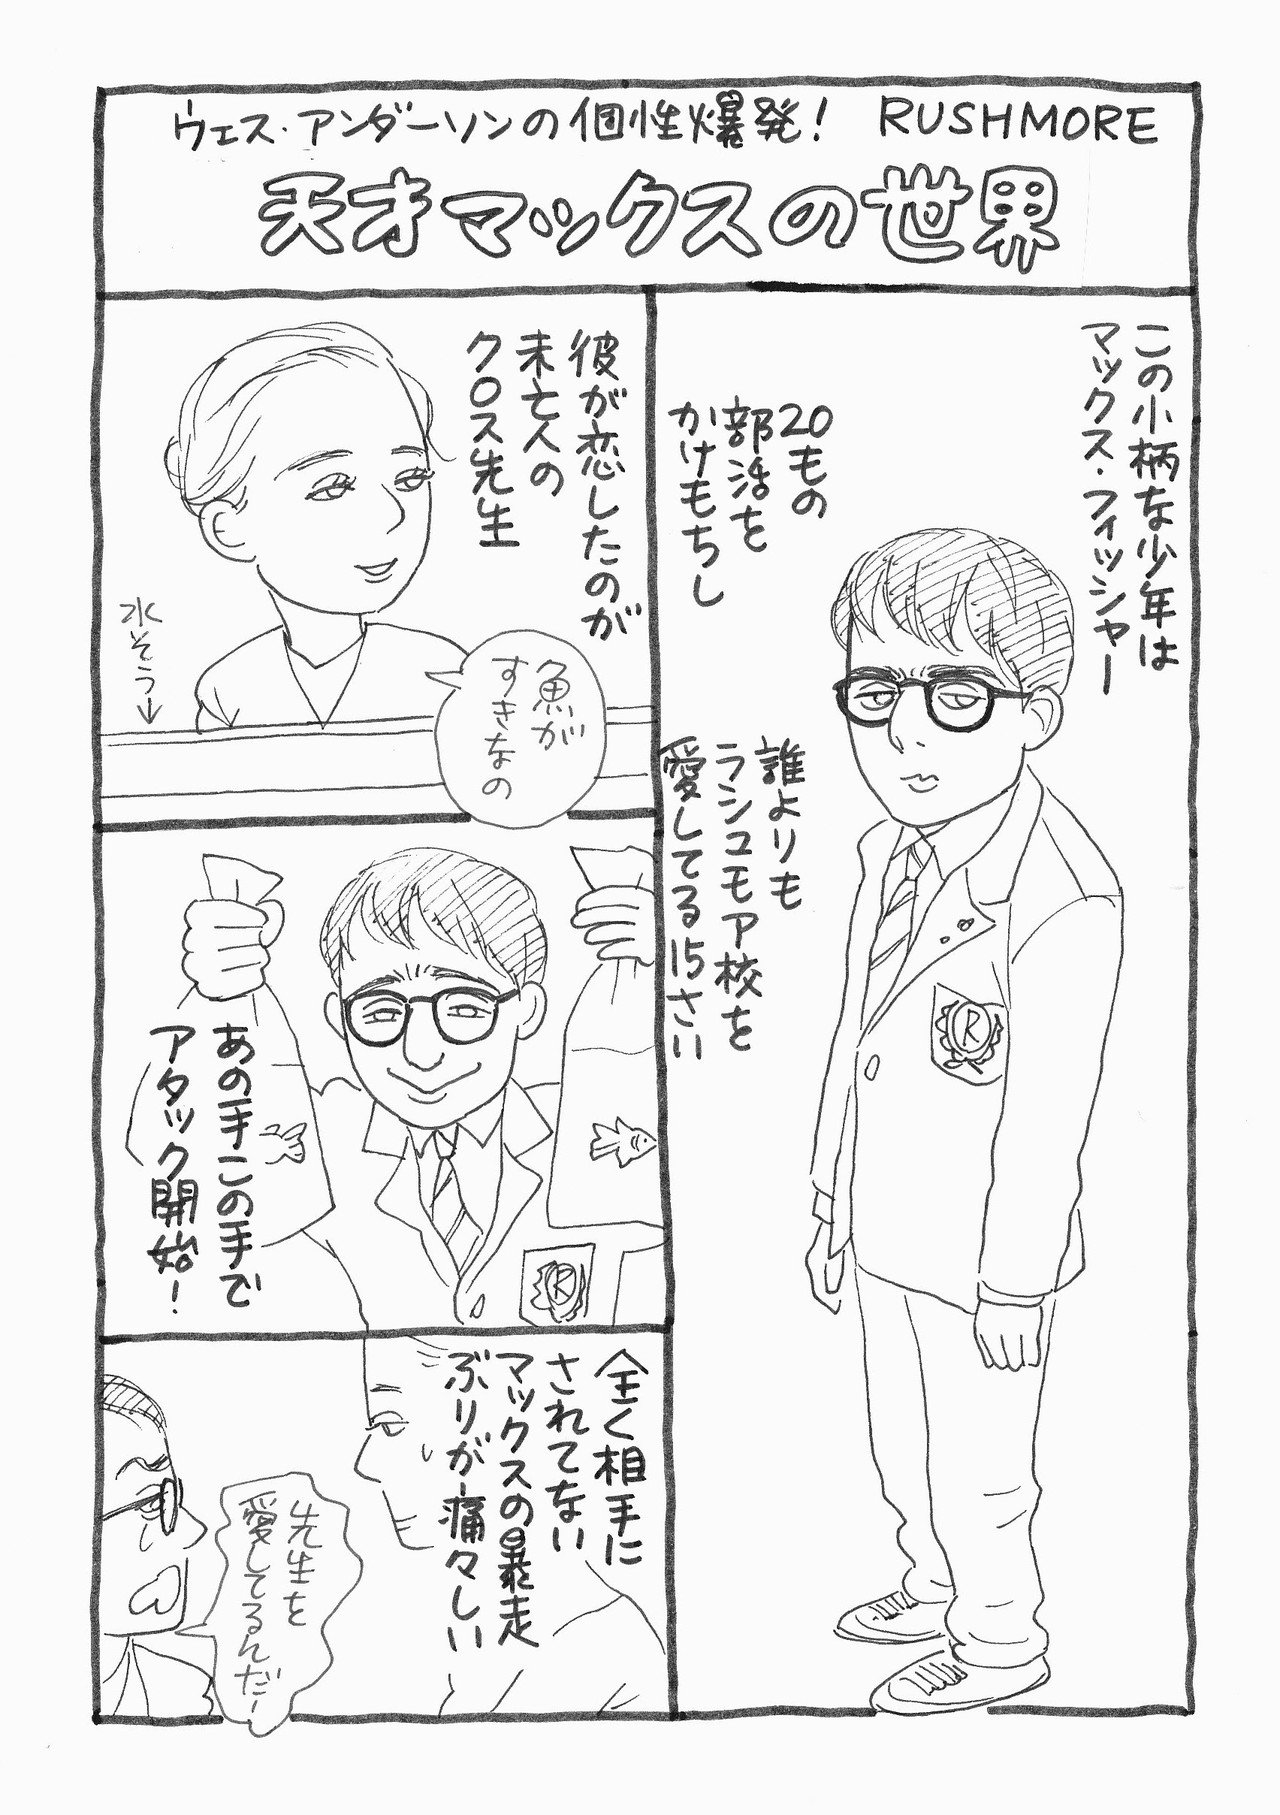 ウェス・アンダーソンの個性爆発! RUSHMORE
天才マックスの世界
この小柄な少年は
マックス・フィッシャー
20もの
部活を
かけもちし
誰よりも
ラシュモア校を
愛してる15さい
R
彼が恋したのが
未亡人の
クロス先生
水そう→
魚が
すきなの
あの手この手で
アタック開始!
R
全く相手に
されてない
マックスの暴走
ぶりが痛々しい
先生を
愛してるんだー